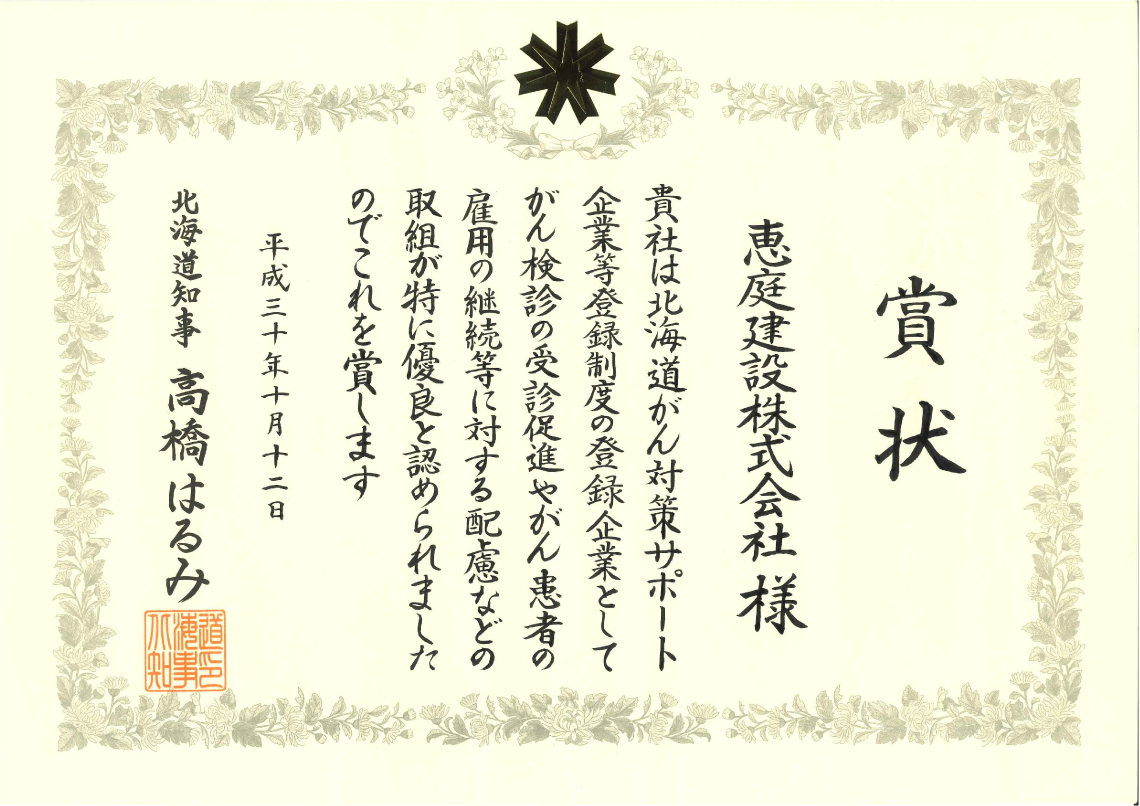 賞状
恵庭建設株式会社 様
貴社は北海道がん対策サポート
企業等登録制度の登録企業として
がん検診の受診促進やがん患者の
雇用の継続等に対する配慮などの
取組が特に優良と認められました
のでこれを賞します
平成三十年十月十二日
北海道知事 高橋はるみ
北海道知事印